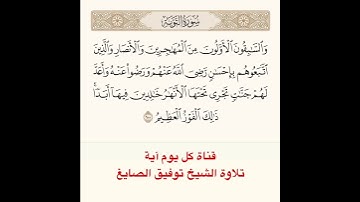 سُورَةُ التَّوْبَةِ
وَالسَّابِقُونَ الْأَوَّلُونَ مِنَ الْمُهَاجِرِينَ وَالْأَنصَارِ وَالَّذِينَ
اتَّبَعُوهُم بِإِحْسَانٍ رَّضِيَ اللَّهُ عَنْهُمْ وَرَضُوا عَنْهُ وَأَعَدَّ
لَهُمْ جَنَّاتٍ تَجْرِي تَحْتَهَا الْأَنْهَارُ خَالِدِينَ فِيهَا أَبَدًا
ذَٰلِكَ الْفَوْزُ الْعَظِيمُ ١٠٠
قناة كل يوم آية
تلاوة الشيخ توفيق الصايغ